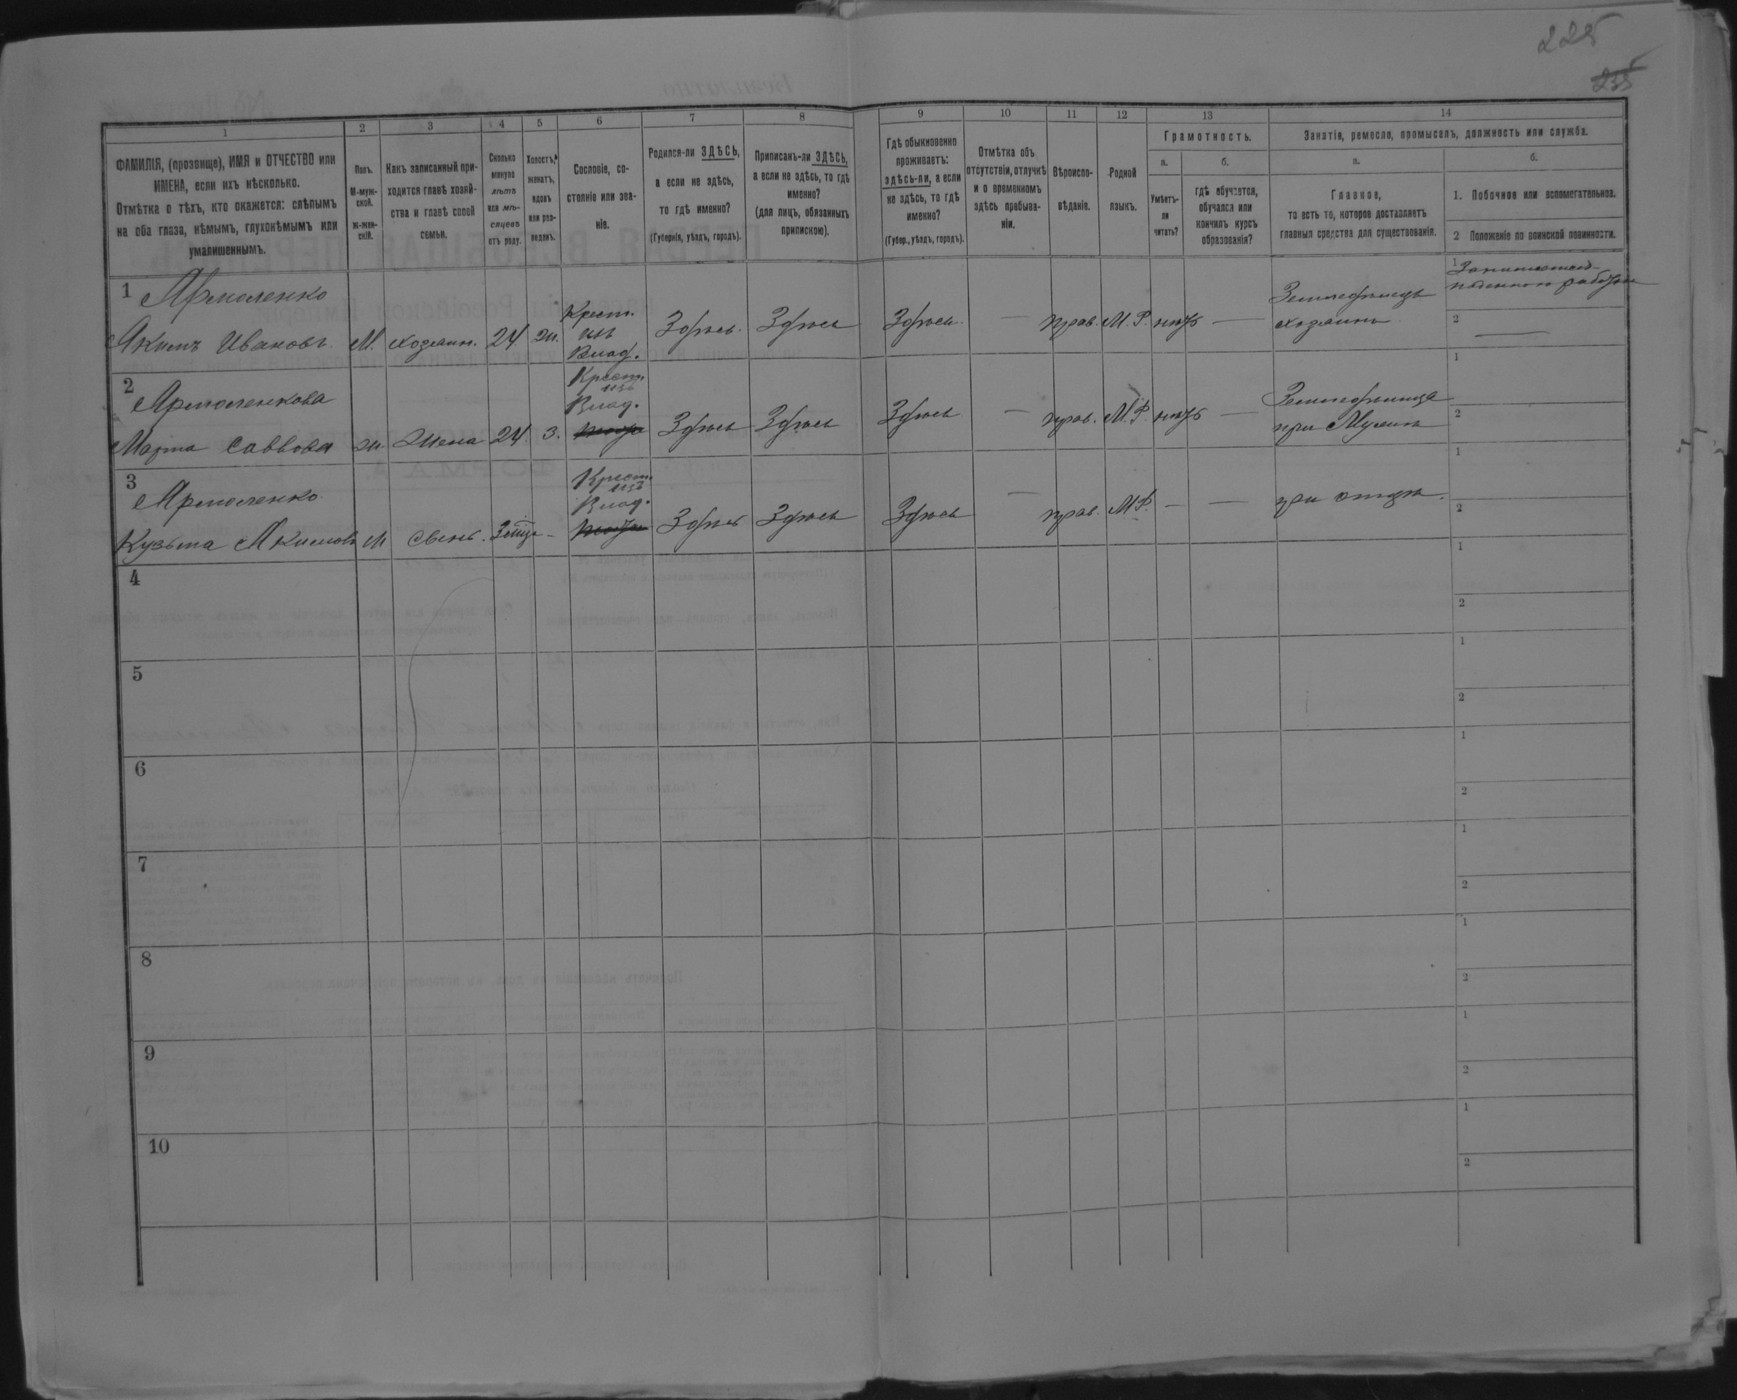 225
235
1
2
3
4
5
6
7
8
9
10
11
12
13
14
ФАМИЛІЯ, (прозвище), ИМЯ и ОТЧЕСТВО или
ИМЕНА, если ихъ нѣсколько.
Отмѣтка о тѣхъ, кто окажется: слѣпымъ
на оба глаза, нѣмымъ, глухонѣмымъ или
умалишеннымъ.
Полъ.
М-муж-
ской.
Ж-жен-
скій.
Какъ записанный при-
ходится главѣ хозяй-
ства и главѣ своей
семьи.
Сколько
минуло
лѣтъ
или мѣ-
сяцевъ
отъ роду.
Холостъ,
женатъ,
вдовъ
или раз-
веденъ.
Сословіе, со-
стояніе или зва-
ніе.
Родился-ли ЗДѢСЬ,
а если не здѣсь,
то гдѣ именно?
(Губернія, уѣздъ, городъ).
Приписанъ-ли ЗДѢСЬ,
а если не здѣсь, то гдѣ
именно?
(для лицъ, обязанныхъ
припискою).
Гдѣ обыкновенно
проживаетъ:
здѣсь-ли, а если
не здѣсь, то гдѣ
именно?
(Губер., уѣздъ, городъ).
Отмѣтка объ
отсутствіи, отлучкѣ
и о временномъ
здѣсь пребыва-
ніи.
Вѣроиспо-
вѣданіе.
Родной
языкъ.
Грамотность.
а.
б.
Умѣетъ-
ли
читать?
гдѣ обучается,
обучался или
кончилъ курсъ
образованія?
Занятіе, ремесло, промыселъ, должность или служба.
а.
б.
Главное,
то есть то, которое доставляетъ
главныя средства для существованія.
1. Побочное или вспомогательное.
2 Положеніе по воинской повинности.
1 Ярмоленко
Якимъ Ивановъ. М. хозяинъ. 24 ж. Крест. изъ Влад. Здѣсь. Здѣсь Здѣсь. — прав. М. Р. нѣтъ — Земледѣлецъ хозяинъ
1
2 —
2 Ярмоленкова
Марта Саввова ж. Жена 24 з. Крест. изъ Влад. Здѣсь Здѣсь Здѣсь — прав. М. Р. нѣтъ — Земледѣлица при Мужѣ
1
2
3 Ярмоленко
Кузьма Якимовъ М Сынъ. Крест. изъ Влад. Здѣсь Здѣсь Здѣсь — прав. М Р. — — при отцѣ.
1
2
4
1
2
5
1
2
6
1
2
7
1
2
8
1
2
9
1
2
10
1
2